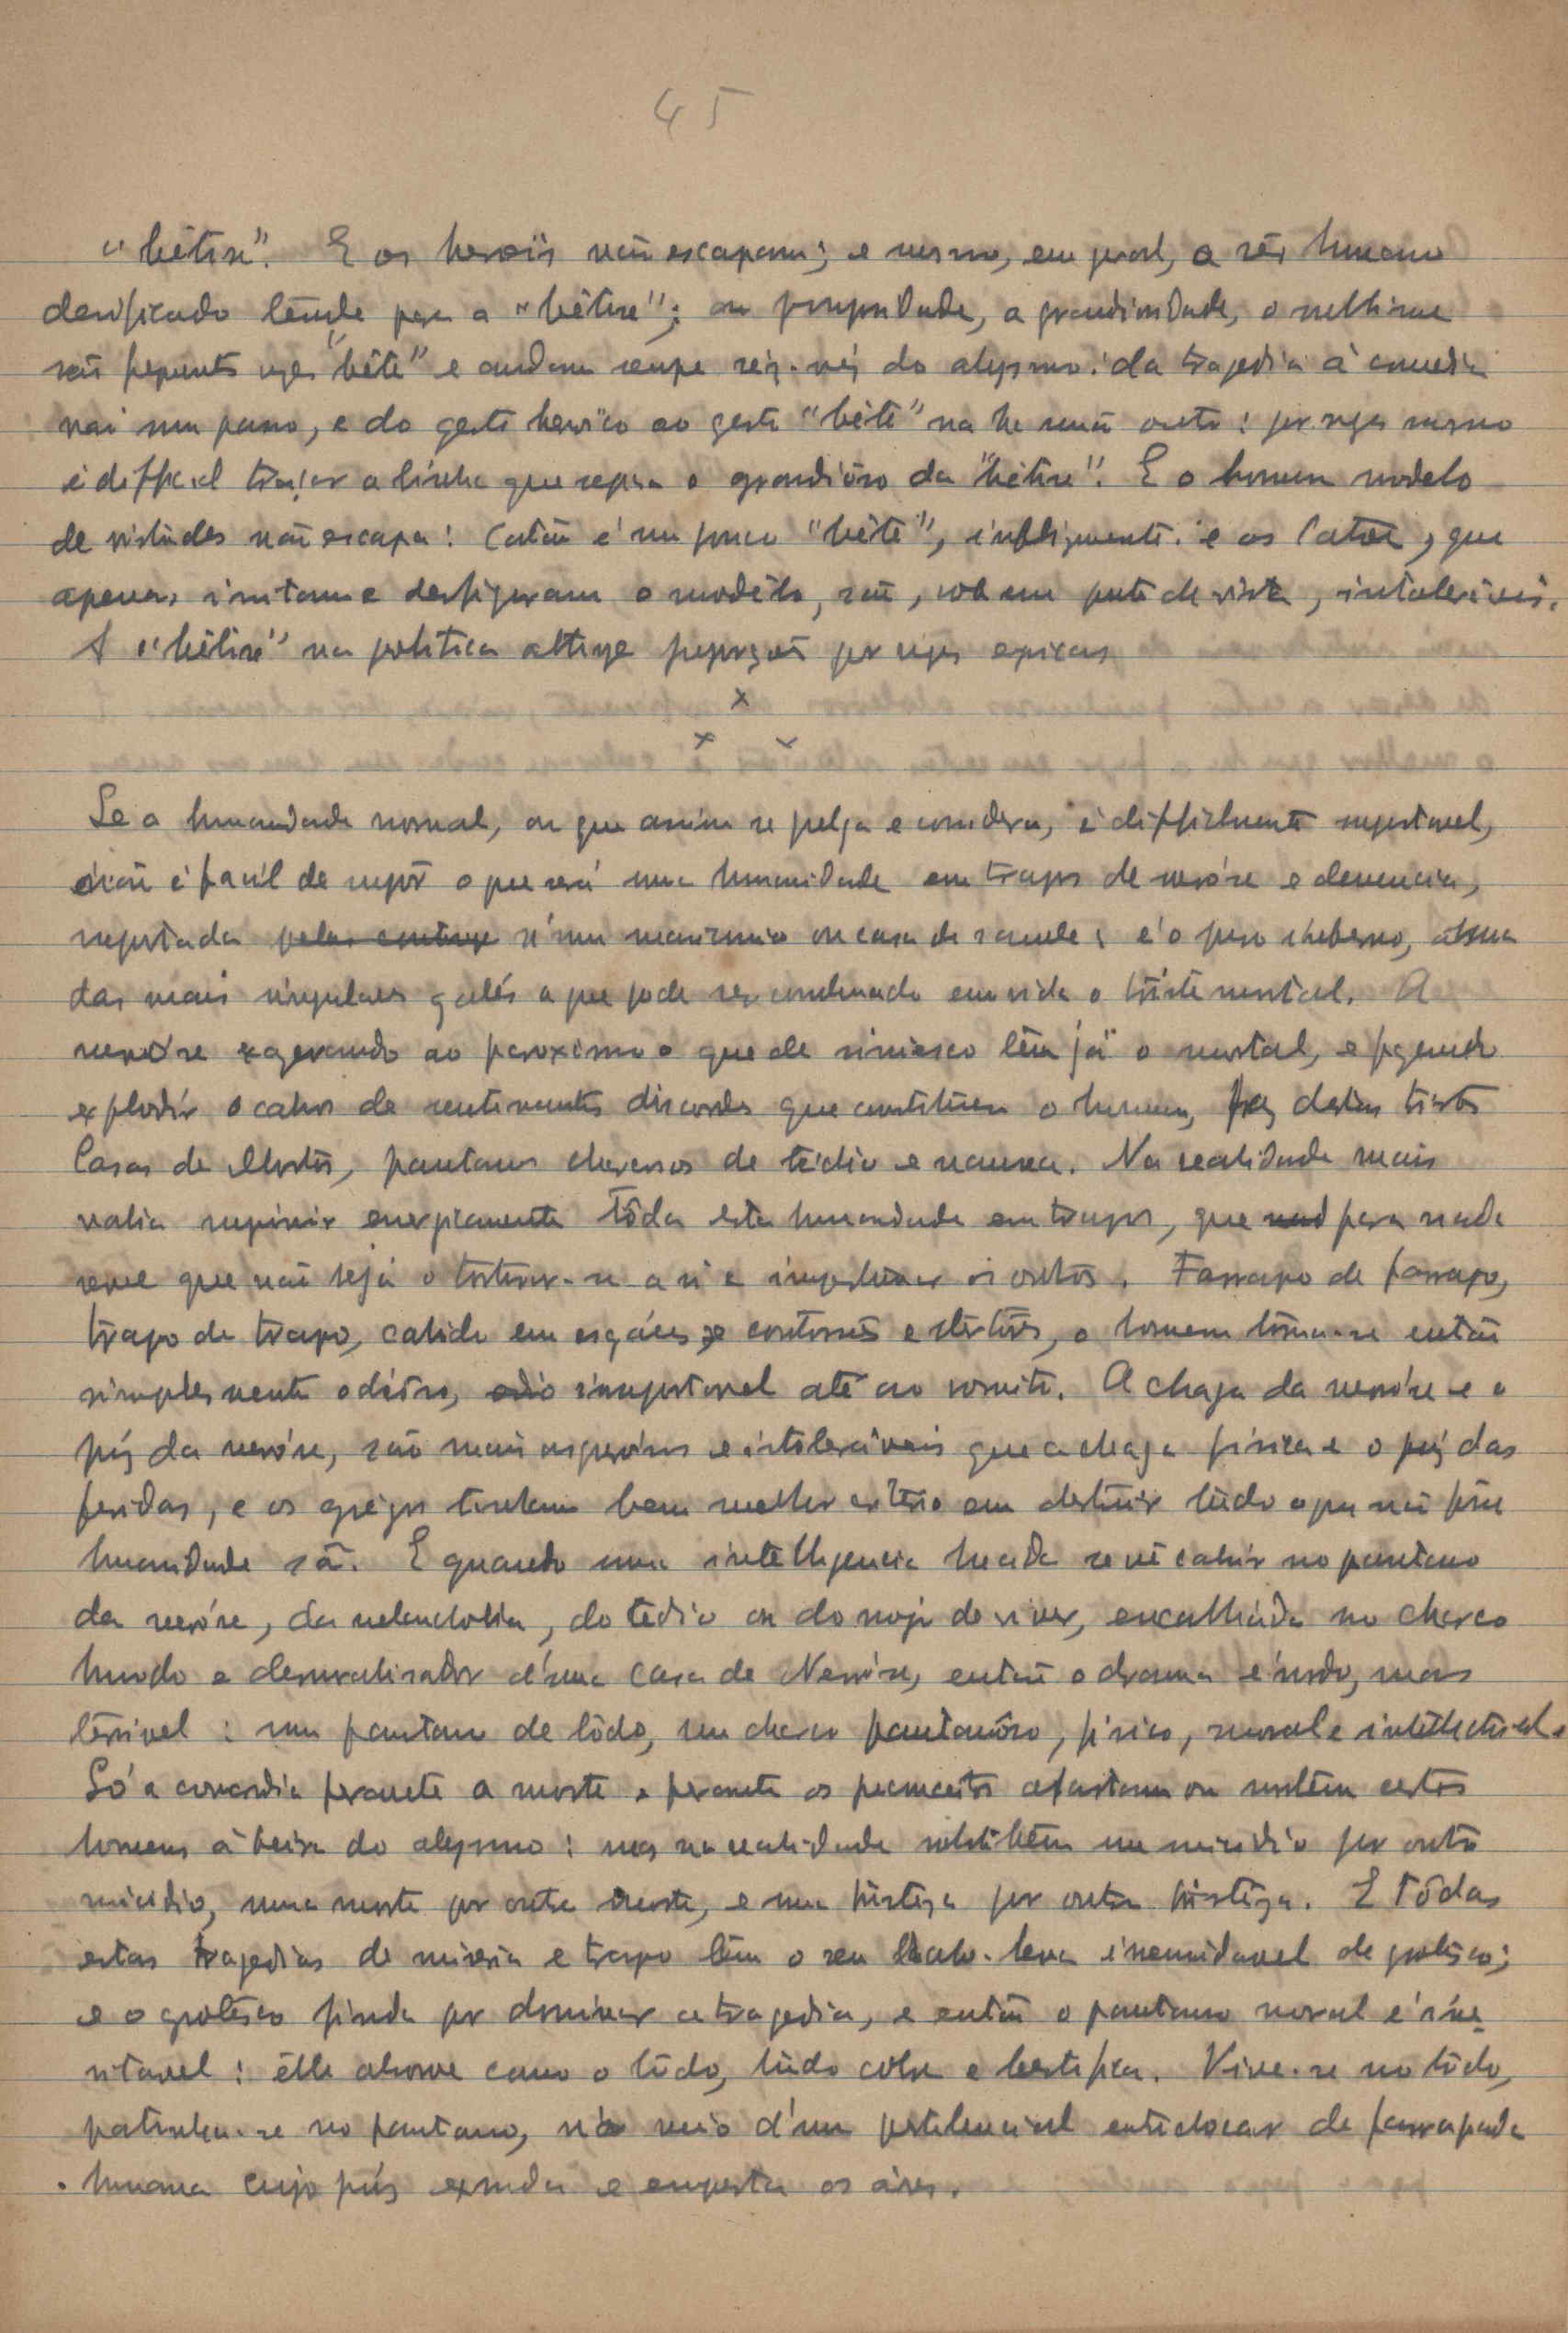 45
"bêtise". E os heroïs não escapam; e mesmo, em geral, o sêr humano
deificado tende para a "bêtise"; a grandiosidade, o sublime
são frequentes vezes "bête" e andam sempre réz-véz do abysmo: da tragedia à comedia
vai um passo, e do gesto heroïco ao gesto "bête" na ha senão outro: por vezes mesmo
é difficil traçar a linha que separa o grandioso da "bêtise". E o homem modelo
de virtudes não escapa: Catão é um pouco "bête", e os Catões, que
apenas imitam e desfiguram o modêlo, são, sob um ponto de vista, intoleraveis.
A "bêtise" na politica attinge proporções por vezes epicas
x
x x
Se a humanidade normal, ou que assim se julga e considera, é difficilmente suportavel,
não é facil de supôr o que será uma humanidade em trapos de nevróse e demencia,
suportada n'um manicomio ou casa de saude: é o
das mais singulares galés a que pode ser condemnado em vida o triste mortal. A
nevróse exagerando ao paroxismo o que de simiesco têm já o mortal, e fazendo
explodir o cahos de sentimentos discordes que constituem o homem, faz destas tristes
Casas de Mortos, pantanos de tédio e nausea. Na realidade mais
valia suprimir energicamente tôda esta humanidade em trapos, que para nada
serve que não seja o torturar-se a si e importunar os outros. Farrapo de farrapo,
trapo de trapo, cahido em esgáres, e contorsões e estertôres, o homem torna-se então
simplesmente odiôso, insuportavel até ao vomito. A chaga da nevróse e o
púz da nevróse, são mais asquerósos e intoleraveis que a chaga fisica e o púz das
feridas, e os grégos tinham bem melhor critério em destruir tudo o que não fôsse
humanidade sã. E quando uma intelligencia lucida se vê cahir no pantano
da nevróse, da melancholia, do tedio ou do nojo de viver, encalhada no charco
lurido e desmoralisador d'uma casa de Nevróse, então o drama é surdo, mas
térrivel: um pantano de lôdo, um charco pantanôso, fisico, moral e intellectual.
Só a covardia perante a morte e perante os preconceitos afastam ou sustêm certos
homens à beira do abysmo: mas na realidade substituem um suicidio por outro
suicidio, uma morte por outra morte, e uma tristeza por outra tristêza. E tôdas
estas tragedias de miseria e trapo têm o seu inevitavel de grotesco;
e o grotêsco finda por dominar a tragedia, e então o pantano moral é ine-
vitavel: êlle absorve como o lôdo, tudo cobre e bestifica. Vive-se no lôdo,
patinha-se no pantano, no meio d'um pestilencial entrechocar de farrapada
humana cujo púz exsuda e empesta os áres.